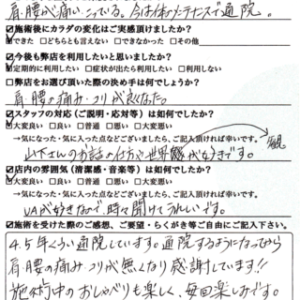 肩腰が痛い、こっている。今は体のメンテナンスで通院。
施術後にカラダの変化はご実感頂けましたか?
できた □どちらとも言えない □できなかった □その他
今後も弊店を利用したいと思いましたか?
定期的に利用したい □症状が出たら利用したい □利用しない
■弊店をお選び頂いた際の決め手は何でしょうか?
肩腰の痛み・コリが良くなった。
スタッフの対応(ご説明・応対等)は如何でしたか?
大変良い □良い □普通 □悪い □大変悪い
→気になった・気に入った点などございましたら、ご記入頂ければ幸いです。
山下さんのお話の仕方や世界観が好きです。
店内の雰囲気(清潔感・音楽等)は如何でしたか?
大変良い □良い □普通 □悪い □大変悪い
→気になった・気に入った点などございましたら、ご記入頂ければ幸いです。
が好きなので、時々聞けてうれしいです。
■施術を受けた際のご感想、ご要望・らくがき等ご自由にご記入下さい。
4.5年くらい通院しています。通院するようになってから
肩腰の痛み・コリが無くなり感謝しています!!
施術中のおしゃべりも楽しく、毎回楽しみです。